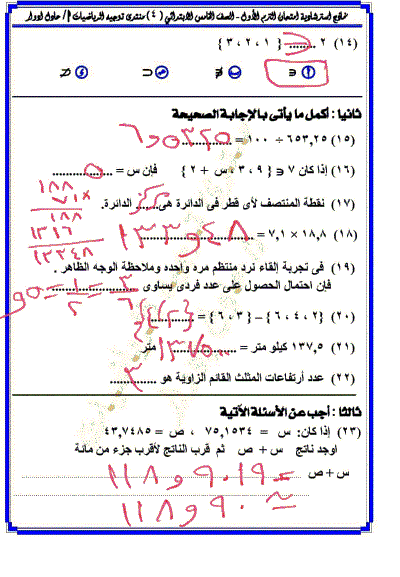 نماذج استرشادية امتحان الترم الأول - الصف الخامس الابتدائي ( ٤ ) منتدى توجيه الرياضيات
(١٤) ٢ ........ { ١ ، ٢ ، ٣ } ⊂
∈ ∉ ⊂ ⊄
ثانيا : أكمل ما يأتى بالإجابة الصحيحة
(١٥) ٦٥٣,٢٥ ÷ ١٠٠ = ............ ٦,٥٣٢٥
(١٦) إذا كان ٧ ∈ { ٩ ، ٣ ، س + ٢ } فإن س = ............ ٥
(١٧) نقطة المنتصف لأى قطر فى الدائرة هى....... الدائرة. مركز
١٨٨
٧١ ×
١٨٨
١٣١٦
١٣٣٤٨
(١٨) ١٨,٨ × ٧,١ = ............ ١٣٣,٤٨
(١٩) فى تجربة إلقاء نرد منتظم مره واحده وملاحظة الوجه الظاهر .
فإن احتمال الحصول على عدد فردى يساوى ............ ٣/٦ = ١/٢ = ٠,٥
(٢٠) { ٢ ، ٤ ، ٦ } – { ٣ ، ٦ } = ............ {٢،٤}
(٢١) ١٣٧,٥ كيلو متر = ............ متر ١٣٧٥٠٠
(٢٢) عدد أرتفاعات المثلث القائم الزاوية هو ............ ٣
ثالثا : أجب عن الأسئلة الآتية
(٢٣) إذا كان: س = ٧٥,١٥٣٤ ، ص = ٤٣,٧٤٨٥
اوجد ناتج س + ص ثم قرب الناتج لأقرب جزء من مائة
س + ص = ١١٨,٩٠١٩
≃ ١١٨,٩٠